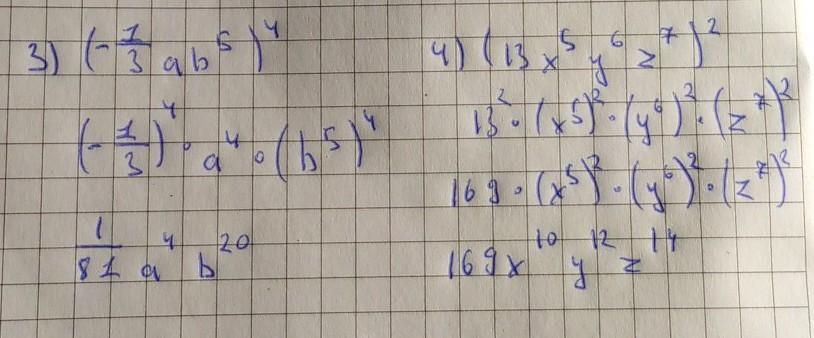 3) (-1/3 ab⁵)⁴
(-1/3)⁴ · a⁴ · (b⁵)⁴
1/81 a⁴ b²⁰
4) (13 x⁵ y⁶ z⁷)²
13² · (x⁵)² · (y⁶)² · (z⁷)²
169 · (x⁵)² · (y⁶)² · (z⁷)²
169x¹⁰ y¹² z¹⁴